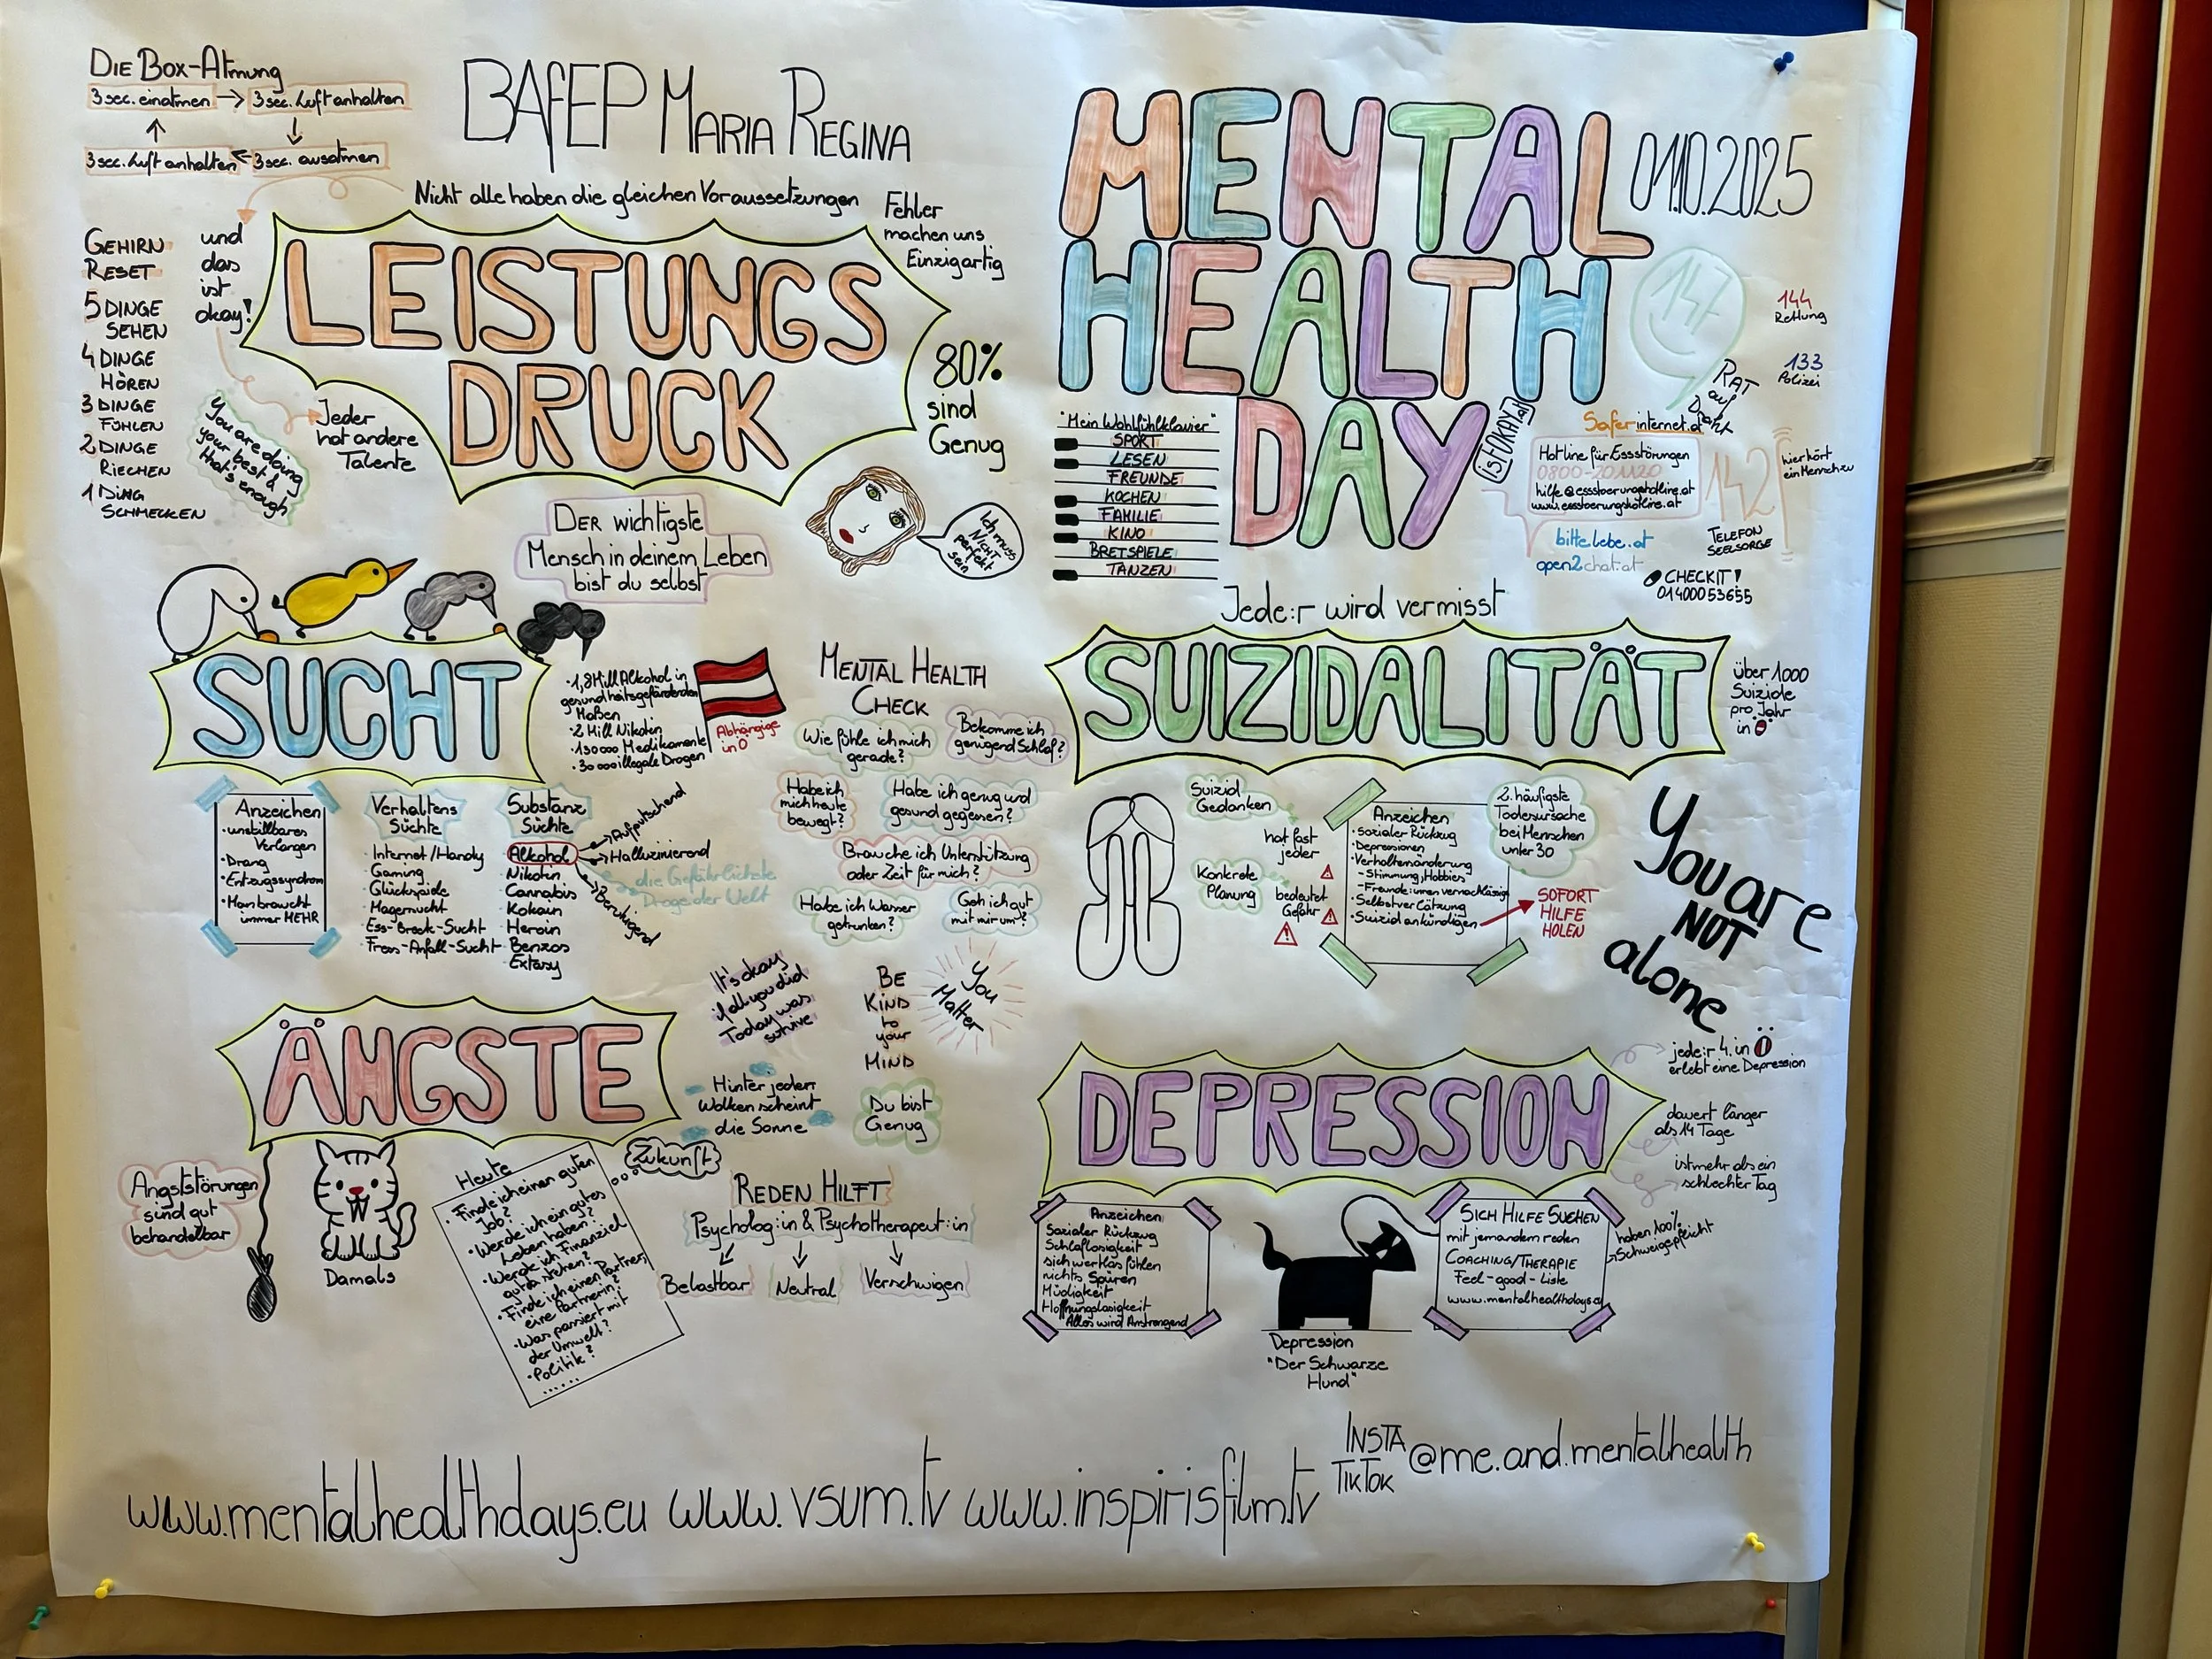 DIE BOX-ATMUNG
3 sec. einatmen → 3 sec. Luft anhalten
3 sec. Luft anhalten ← 3 sec. ausatmen
BAfEP MARIA REGINA
Nicht alle haben die gleichen Voraussetzungen
Fehler
machen uns
Einzigartig
GEHIRN
RESET
5 DINGE
SEHEN
4 DINGE
HÖREN
3 DINGE
FÜHLEN
2 DINGE
RIECHEN
1 DING
SCHMECKEN
und
das
ist
okay!
LEISTUNGS
DRUCK
80%
sind
Genug
You are doing
your best &
that's enough
Jeder
hat andere
Talente
DER wichtigste
Mensch in deinem Leben
bist du selbst
Ich muss
NICHT
perfekt
sein
MENTAL
HEALTH
DAY
01.10.2025
147
RAT
auf
Draht
144
Rettung
133
Polizei
"Mein Wohlfühlklavier"
SPORT
LESEN
FREUNDE
KOCHEN
FAMILIE
KINO
BRETSPIELE
TANZEN
istOKAY.at
Saferinternet.at
Hotline für Essstörungen
0800-201120
hilfe@essstoerungshotline.at
www.essstoerungshotline.at
142
hier hört
ein Mensch zu
TELEFON
SEELSORGE
bittelebe.at
open2chat.at
CHECKIT!
014000 53655
SUCHT
·1,8 Mill Alkohol in
gesundheitsgefärdenden
Maßen
·2 Mill Nikotin
·150000 Medikamente
·30000 illegale Drogen
Abhängige
in Ö
Anzeichen
·unstillbares
Verlangen
·Drang
·Entzugssyndrom
·Man braucht
immer MEHR
Verhaltens
Süchte
·Internet/Handy
Gaming
Glückspiele
Magersucht
Ess-Brech-Sucht
Fress-Anfall-Sucht
Substanz
Süchte
Alkohol
Nikotin
Cannabis
Kokain
Heroin
Benzos
Extasy
→Aufputschend
→Halluzinierend
→Beruhigend
die Gefährlichste
Droge der Welt
MENTAL HEALTH
CHECK
Wie fühle ich mich
gerade?
Bekomme ich
genügend Schlaf?
Habe ich
mich heute
bewegt?
Habe ich genug und
gesund gegessen?
Brauche ich Unterstützung
oder Zeit für mich?
Habe ich Wasser
getrunken?
Geh ich gut
mit mir um?
It's okay
if all you did
Today was
survive
BE
KIND
to
your
MIND
You
Matter
Hinter jeden
Wolken scheint
die Sonne
Du bist
Genug
Jede:r wird vermisst
SUIZIDALITÄT
über 1000
Suizide
pro Jahr
in Ö
Suizid
Gedanken
hat fast
jeder
Konkrete
Planung
bedeutet
Gefahr
Anzeichen
·Sozialer Rückzug
·Depressionen
·Verhaltensänderung
-Stimmung, Hobbies
-Freunde:innen vernachlässigen
·Selbstverlätzung
·Suizid ankündigen
SOFORT
HILFE
HOLEN
2. häufigste
Todesursache
bei Menschen
unter 30
You are
NOT
alone
ÄNGSTE
Angststörungen
sind gut
behandelbar
Damals
Heute
·Finde ich einen guten
Job?
·Werde ich ein gutes
Leben haben?
·Werde ich Finanziel
gut da stehen?
·Finde ich einen Partner,
eine Partnerin?
·Was passiert mit
der Umwelt?
·Politik?
......
Zukunft
REDEN HILFT
Psycholog:in & Psychotherapeut:in
Belastbar
Neutral
Verschwigen
DEPRESSION
jede:r 4. in Ö
erlebt eine Depression
dauert länger
als 14 Tage
ist mehr als ein
schlechter Tag
Anzeichen
Sozialer Rückzug
Schlaflosigkeit
sich wertlos fühlen
nichts Spüren
Müdigkeit
Hoffnungslosigkeit
Alles wird Anstrengend
Depression
"Der Schwarze
Hund"
SICH HILFE SUCHEN
mit jemandem reden
COACHING/THERAPIE
Feel-good-Liste
www.mentalhealthdays.eu
haben 100%
Schweigepflicht
INSTA
TIKTOK
@me.and.mentalhealth
www.mentalhealthdays.eu www.vsum.tv www.inspirisfilm.tv